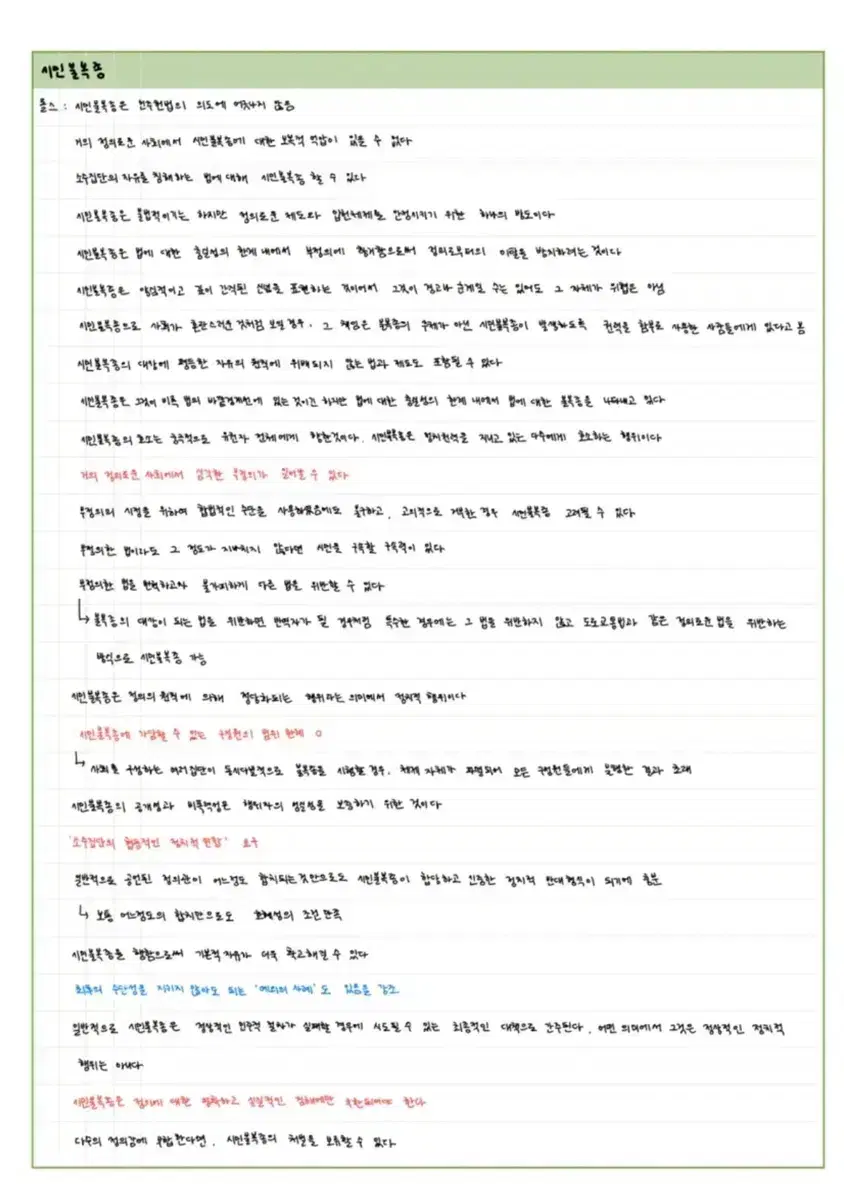 시민불복종
롤스 : 시민불복종은 민주헌법의 의도에 어긋나지 않음
거의 정의로운 사회에서 시민불복종에 대한 보복적 억압이 있을 수 없다
소수집단의 자유를 침해하는 법에 대해 시민불복종 할 수 있다
시민불복종은 불법적이기는 하지만 정의로운 제도와 입헌체제를 안정시키기 위한 하나의 방도이다
시민불복종은 법에 대한 충실성의 한계 내에서 부정의에 항거함으로써 정의로부터의 이탈을 방지하려는 것이다
시민불복종은 양심적이고 깊이 간직된 신념을 표현하는 것이어서 그것이 경고나 훈계일 수는 있어도 그 자체가 위협은 아님
시민불복종으로 사회가 혼란스러운 것처럼 보일 경우, 그 책임은 불복종의 주체가 아닌 시민불복종이 발생하도록 권력을 함부로 사용한 사람들에게 있다고 봄
시민불복종의 대상에 평등한 자유의 원칙에 위배되지 않는 법과 제도도 포함될 수 있다
시민불복종은 그것이 비록 법의 바깥경계선에 있는 것이긴 하지만 법에 대한 충실성의 한계 내에서 법에 대한 불복종을 나타내고 있다
시민불복종의 호소는 궁극적으로 유권자 전체에게 향한것이다. 시민불복종은 정치권력을 지니고 있는 다수에게 호소하는 행위이다
거의 정의로운 사회에서 심각한 부정의가 일어날 수 있다
부정의의 시정을 위하여 합법적인 수단을 사용하였음에도 불구하고, 고의적으로 거절한 경우 시민불복종 고려될 수 있다
부정의한 법이라도 그 정도가 지나치지 않다면 시민을 구속할 구속력이 있다
부정의한 법을 변혁하고자 불가피하게 다른 법을 위반할 수 있다
↳ 불복종의 대상이 되는 법을 위반하면 반역자가 될 경우처럼 특수한 경우에는 그 법을 위반하지 않고 도로교통법과 같은 정의로운 법을 위반하는
방식으로 시민불복종 가능
시민불복종은 정의의 원칙에 의해 정당화되는 행위라는 의미에서 정치적 행위이다
시민불복종에 가담할 수 있는 구성원의 범위 한계 O
↳ 사회를 구성하는 여러집단이 동시다발적으로 불복종을 시행할 경우, 체제 자체가 파멸되어 모든 구성원들에게 불행한 결과 초래
시민불복종의 공개성과 비폭력성은 행위자의 성실성을 보증하기 위한 것이다
'소수집단의 협동적인 정치적 연합' 요구
일반적으로 공언된 정의관이 어느정도 합치되는것만으로도 시민불복종이 합당하고 신중한 정치적 반대형식이 되기에 충분
↳ 보통 어느정도의 합치만으로도 호혜성의 조건 만족
시민불복종을 행함으로써 기본적 자유가 더욱 확고해질 수 있다
최후의 수단성을 지키지 않아도 되는 '예외의 사례'도 있음을 강조
일반적으로 시민불복종은 정상적인 민주적 절차가 실패할 경우에 시도될 수 있는 최종적인 대책으로 간주된다. 어떤 의미에서 그것은 정상적인 정치적
행위는 아니다
시민불복종은 정의에 대한 명확하고 실질적인 침해에만 국한되어야 한다
다수의 정의감에 부합한다면, 시민불복종의 처벌을 보류할 수 있다